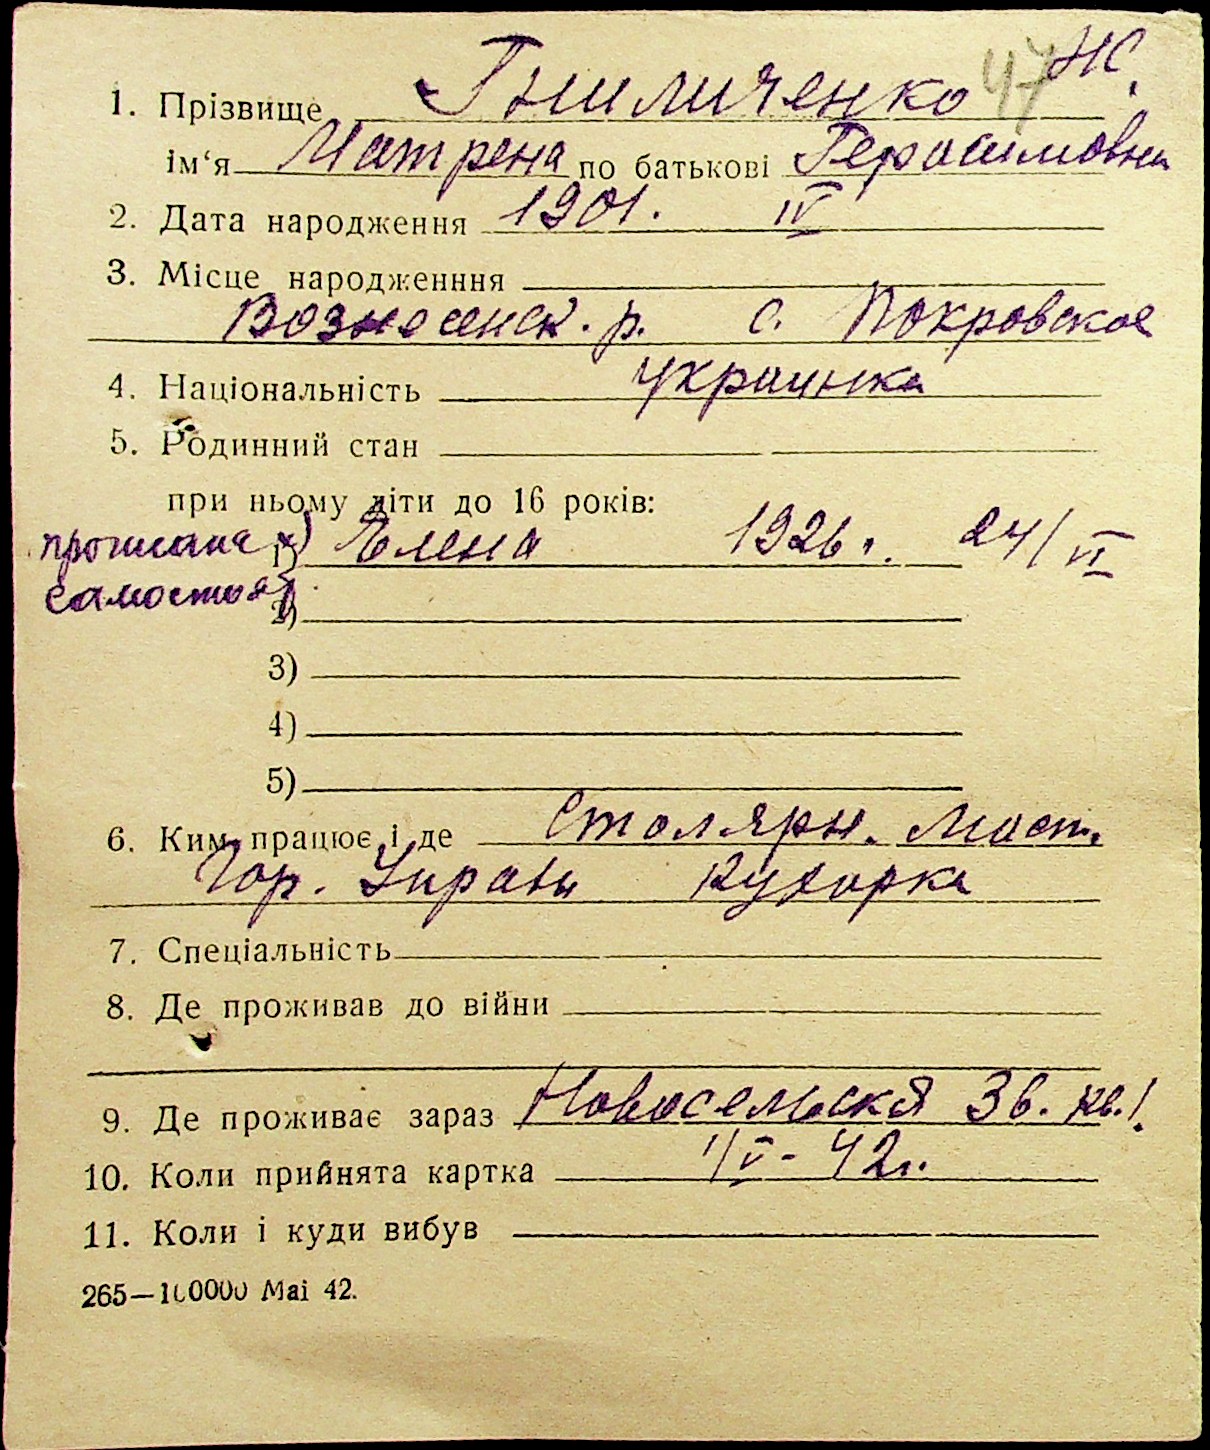 47 Ж.
1. Прізвище Гниличенко
ім‘я Матрена по батькові Герасимовна
2. Дата народження 1901. IV
3. Місце народженння
Вознесенск. р. с. Покровское
4. Національність украинка
5. Родинний стан
при ньому діти до 16 років:
прописана x) 1) Елена 1926 г. 24/VI
самостоят 2)
3)
4)
5)
6. Ким працює і де Столярн. Маст.
Гор. Управы кухарка
7. Спеціальність
8. Де проживав до війни
9. Де проживає зараз Новосельская 36. кв.1
10. Коли прийнята картка 1/V - 42г.
11. Коли і куди вибув
265—100000 Маі 42.